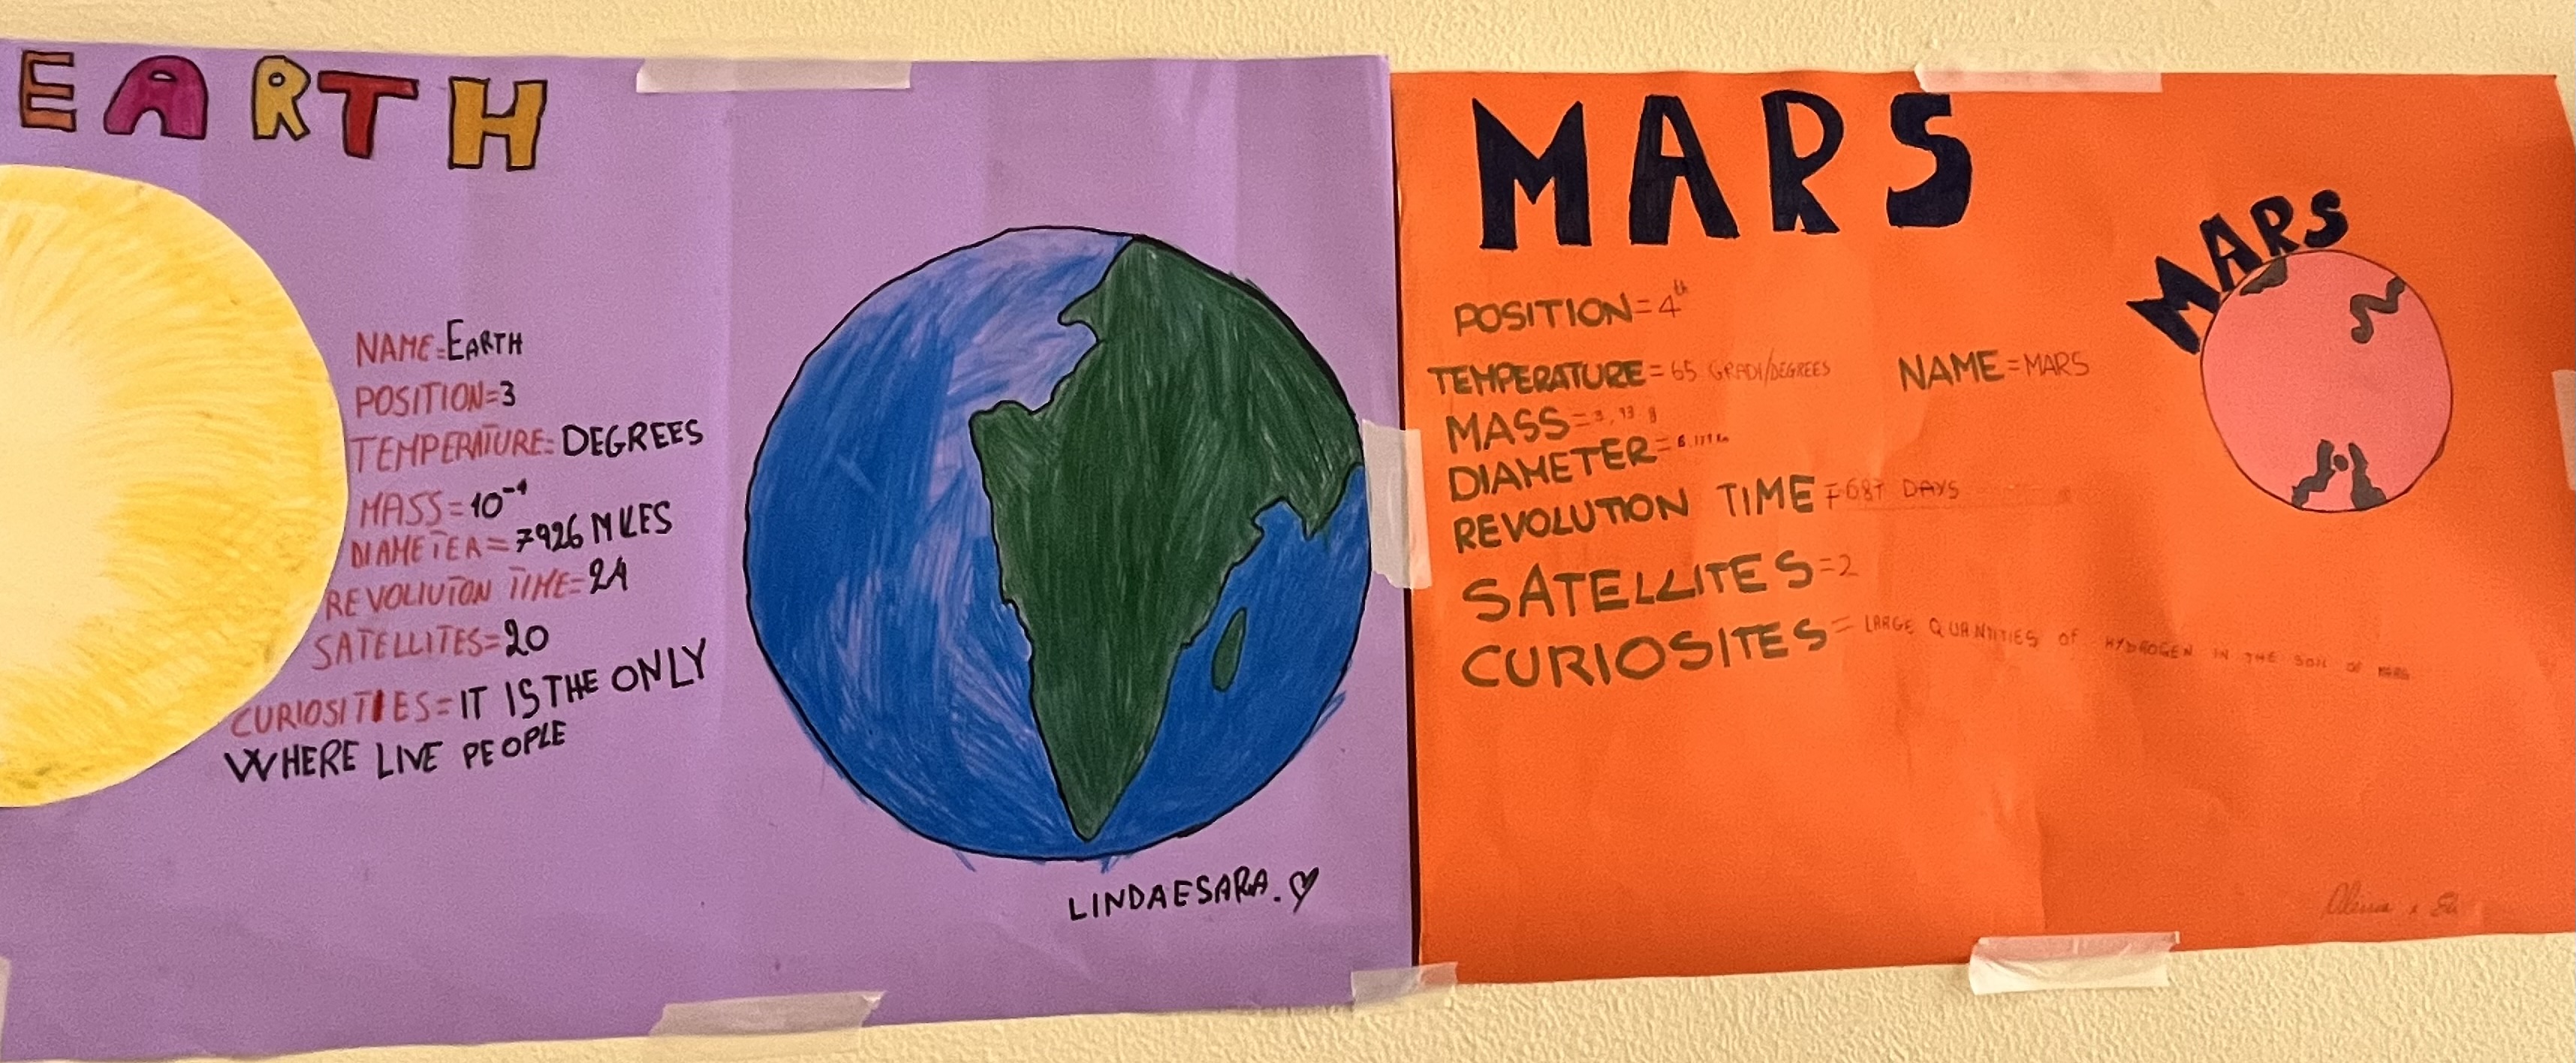 EARTH
NAME=EARTH
POSITION=3
TEMPERATURE=DEGREES
MASS=10⁻⁴
DIAMETER=7926 MILES
REVOLIUTON TIME=24
SATELLITES=20
CURIOSITIES=IT IS THE ONLY
WHERE LIVE PEOPLE
LINDAESARA.♡
MARS
MARS
POSITION=4th
TEMPERATURE=65 GRADI/DEGREES
NAME=MARS
MASS=
DIAMETER=
REVOLUTION TIME=687 DAYS
SATELLITES=2
CURIOSITES=LARGE QUANTITIES OF HYDROGEN IN THE SOIL OF MARS